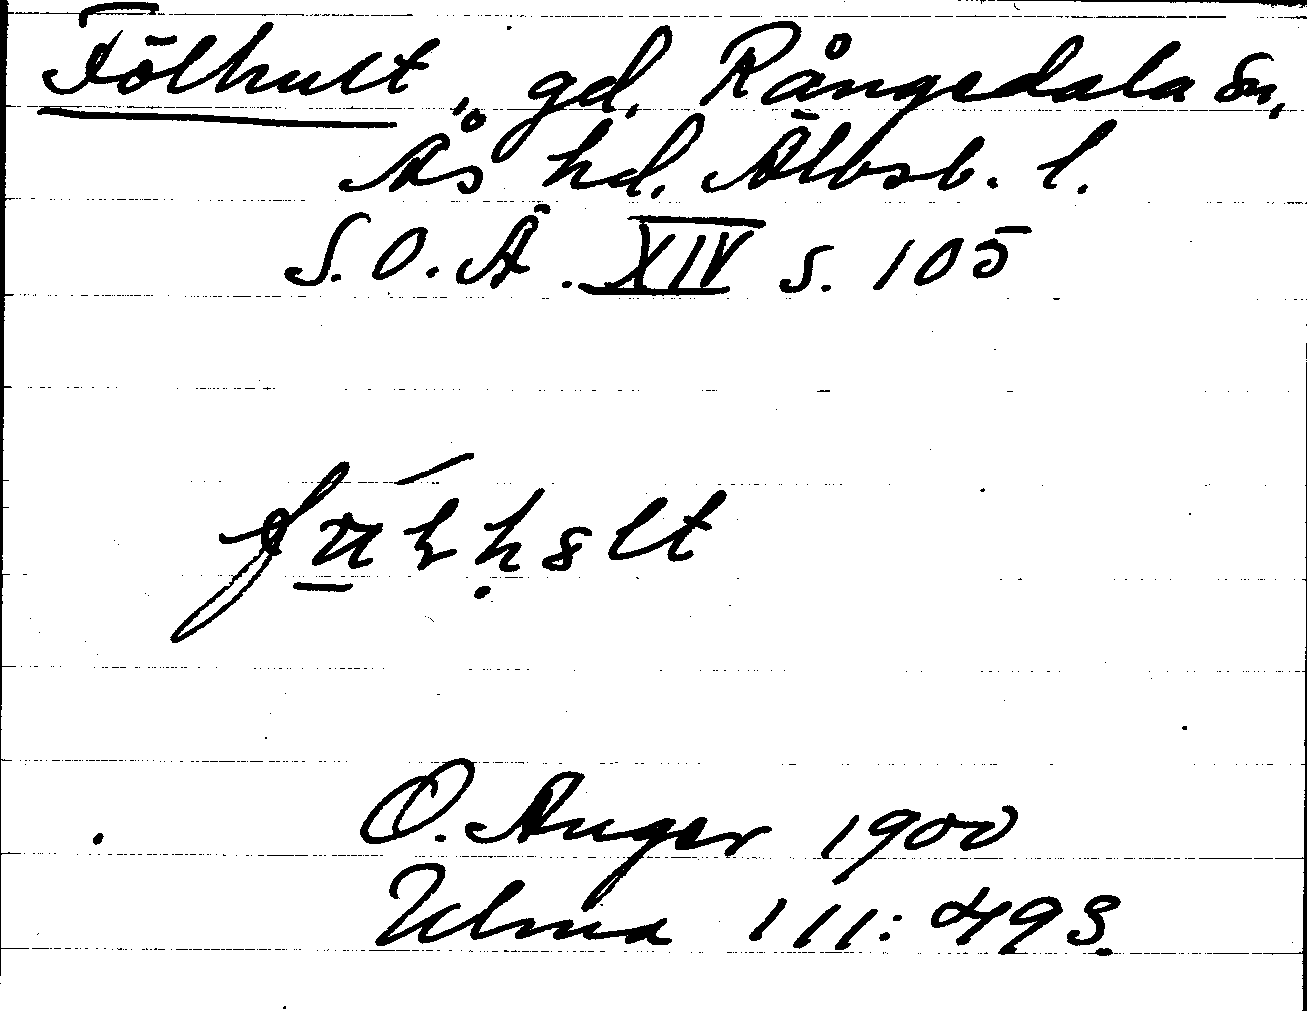 Fölhult, gd, Rångedala sn,
Ås hd. Älvsb. l.
S. O. Ä. XIV s. 105
O. Anger 1900
Ulma 111: 493.